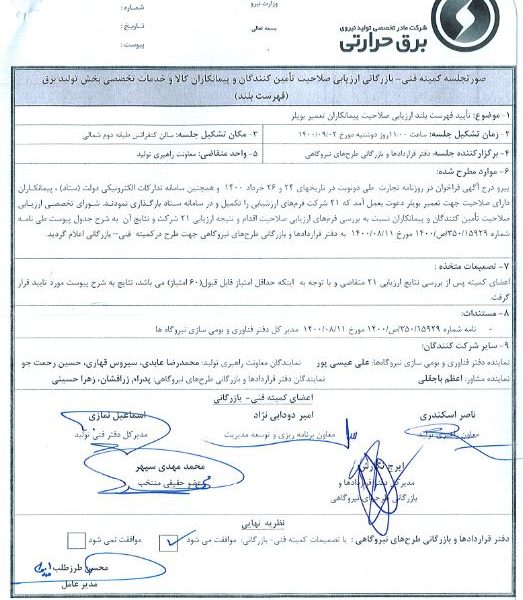 وزارت نیرو
شماره :
تاریخ :
پیوست :
بسمه تعالی
شرکت مادر تخصصی تولید نیروی
برق حرارتی
صورتجلسه کمیته فنی- بازرگانی ارزیابی صلاحیت تأمین کنندگان و پیمانکاران کالا و خدمات تخصصی بخش تولید برق
(فهرست بلند)
۱- موضوع: تأیید فهرست بلند ارزیابی صلاحیت پیمانکاران تعمیر بویلر
۲- زمان تشکیل جلسه: ساعت ۱۱:۰۰ روز دوشنبه مورخ ۱۴۰۰/۰۹/۰۲
۳- مکان تشکیل جلسه: سالن کنفرانس طبقه دوم شمالی
۴- برگزار کننده جلسه: دفتر قراردادها و بازرگانی طرح‌های نیروگاهی
۵- واحد متقاضی: معاونت راهبری تولید
۶- موارد مطرح شده:
پیرو درج آگهی فراخوان در روزنامه تجارت طی دونوبت در تاریخهای ۲۴ و ۲۶ خرداد ۱۴۰۰ و همچنین سامانه تدارکات الکترونیکی دولت (ستاد)، پیمانکاران
دارای صلاحیت جهت تعمیر بویلر دعوت بعمل آمد که ۲۱ شرکت فرم‌های ارزشیابی را تکمیل و در سامانه ستاد بارگذاری نمودند. شورای تخصصی ارزیابی
صلاحیت تأمین کنندگان و پیمانکاران نسبت به بررسی فرم‌های ارزیابی صلاحیت اقدام و نتیجه ارزیابی ۲۱ شرکت و نتایج آن به شرح جدول پیوست طی نامه
شماره ۳۵۰/۱۵۹۲۹/ص/۱۴۰۰ مورخ ۱۴۰۰/۰۸/۱۱ به دفتر قراردادها و بازرگانی طرح‌های نیروگاهی جهت طرح درکمیته فنی- بازرگانی اعلام گردید.
۷- تصمیمات متخذه :
اعضای کمیته پس از بررسی نتایج ارزیابی ۲۱ متقاضی و با توجه به اینکه حداقل امتیاز قابل قبول (۶۰ امتیاز) می باشد، نتایج به شرح پیوست مورد تایید قرار
گرفت.
۸- مستندات:
- نامه شماره ۳۵۰/۱۵۹۲۹/ص/۱۴۰۰ مورخ ۱۴۰۰/۰۸/۱۱ مدیر کل دفتر فناوری و بومی سازی نیروگاه ها
۹- سایر شرکت کنندگان:
نماینده دفتر فناوری و بومی سازی نیروگاه‌ها: علی عیسی پور نمایندگان معاونت راهبری تولید: محمدرضا عابدی، سیروس قهاری، حسین رحمت جو
نماینده مشاور: اعظم باجقلی نمایندگان دفتر قراردادها و بازرگانی طرح‌های نیروگاهی: پدرام زرافشان، زهرا حسینی
اعضای کمیته فنی- بازرگانی
ناصر اسکندری
معاون راهبری تولید
امیر دودابی نژاد
معاون برنامه ریزی و توسعه مدیریت
اسماعیل نمازی
مدیرکل دفتر فنی تولید
ایرج
مدیر کل دفتر قراردادها و
بازرگانی طرح‌های نیروگاهی
محمد مهدی سپهر
عضو حقیقی منتخب
نظریه نهایی
دفتر قراردادها و بازرگانی طرح‌های نیروگاهی: با تصمیمات کمیته فنی- بازرگانی: موافقت می شود موافقت نمی شود
محسن طرزطلب
مدیر عامل